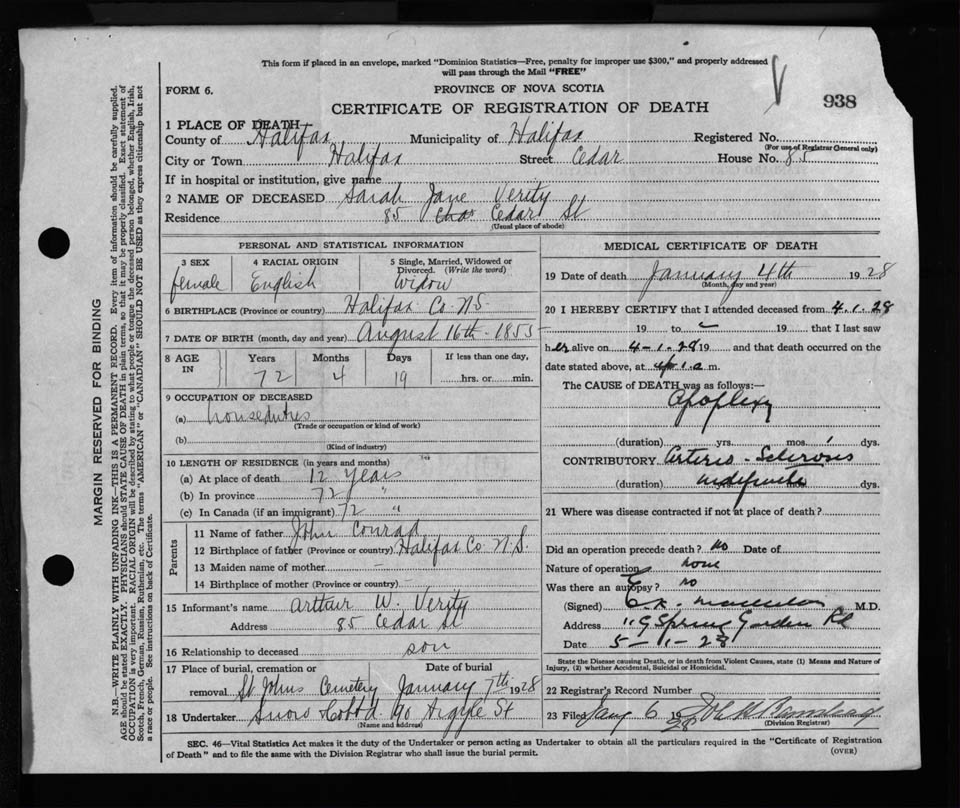 This form if placed in an envelope, marked "Dominion Statistics—Free, penalty for improper use $300," and properly addressed
will pass through the Mail "FREE"
FORM 6.
PROVINCE OF NOVA SCOTIA
938
CERTIFICATE OF REGISTRATION OF DEATH
1 PLACE OF DEATH
County of Halifax Municipality of Halifax Registered No.
(For use of Registrar General only)
City or Town Halifax Street Cedar House No. 85
If in hospital or institution, give name
2 NAME OF DECEASED Sarah Jane Verity
Residence 85 Cedar St
(Usual place of abode)
PERSONAL AND STATISTICAL INFORMATION
3 SEX 4 RACIAL ORIGIN 5 Single, Married, Widowed or
Divorced. (Write the word)
female English Widow
6 BIRTHPLACE (Province or country) Halifax Co. N.S.
7 DATE OF BIRTH (month, day and year) August 16th 1855
8 AGE IN Years Months Days If less than one day,
72 4 19 hrs. or min.
9 OCCUPATION OF DECEASED
(a) houseduties
(Trade or occupation or kind of work)
(b)
(Kind of industry)
10 LENGTH OF RESIDENCE (in years and months)
(a) At place of death 12 Years
(b) In province 72 "
(c) In Canada (if an immigrant) 72 "
Parents
11 Name of father John Conrad
12 Birthplace of father (Province or country) Halifax Co. N.S.
13 Maiden name of mother -
14 Birthplace of mother (Province or country) -
15 Informant's name Arthur W. Verity
Address 85 Cedar St
16 Relationship to deceased son
17 Place of burial, cremation or Date of burial
removal St Johns Cemetery January 7th 1928
18 Undertaker Snow & Co Ltd 90 Argyle St
(Name and address)
MEDICAL CERTIFICATE OF DEATH
19 Date of death January 4th 1928
(Month, day and year)
20 I HEREBY CERTIFY that I attended deceased from 4.1.28
19 to 19 that I last saw
her alive on 4-1-28 19 and that death occurred on the
date stated above, at 1.a m.
The CAUSE of DEATH was as follows:—
Apoplexy
(duration) yrs. mos. 1 dys.
CONTRIBUTORY Arterio-Sclerosis
(duration) indefinite dys.
21 Where was disease contracted if not at place of death?
Did an operation precede death? no Date of
Nature of operation none
Was there an autopsy? no
(Signed) M.D.
Address Spring Garden Rd
Date 5-1-28
State the Disease causing Death, or in death from Violent Causes, state (1) Means and Nature of
Injury, (2) whether Accidental, Suicidal or Homicidal.
22 Registrar's Record Number
23 Filed Jany 6 1928
(Division Registrar)
SEC. 46—Vital Statistics Act makes it the duty of the Undertaker or person acting as Undertaker to obtain all the particulars required in the "Certificate of Registration
of Death" and to file the same with the Division Registrar who shall issue the burial permit.
(OVER)
MARGIN RESERVED FOR BINDING
N.B.—WRITE PLAINLY WITH UNFADING INK—THIS IS A PERMANENT RECORD. Every item of information should be carefully supplied.
AGE should be stated EXACTLY. PHYSICIANS should STATE CAUSE OF DEATH in plain terms, so that it may be properly classified. Exact statement of
OCCUPATION is very important. RACIAL ORIGIN will be described by stating to what people or tongue the deceased person belonged, whether English, Irish,
Scotch, French, German, Russian, Ruthenian, etc. The terms "AMERICAN" or "CANADIAN" SHOULD NOT BE USED as they express citizenship but not
a race or people. See instructions on back of Certificate.